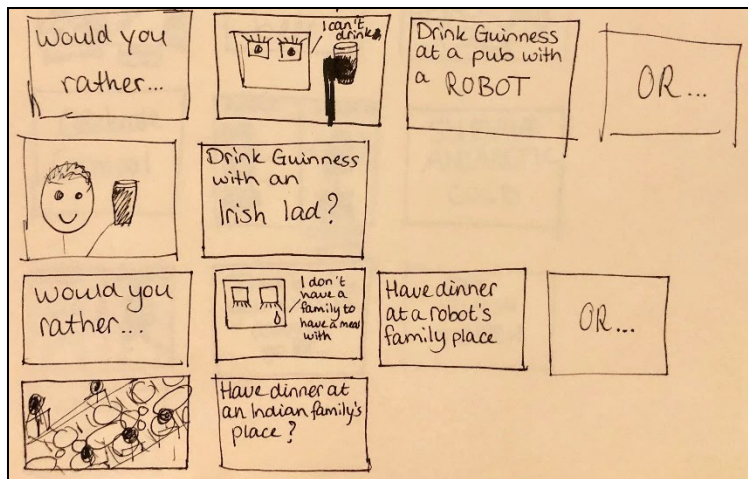 Would you
rather...
I can't
drink
Drink Guinness
at a pub with
a ROBOT
OR...
Drink Guinness
with an
Irish lad?
Would you
rather...
I don't
have a
family to
have a meal
with
Have dinner
at a robot's
family place
OR...
Have dinner at
an Indian family's
place?